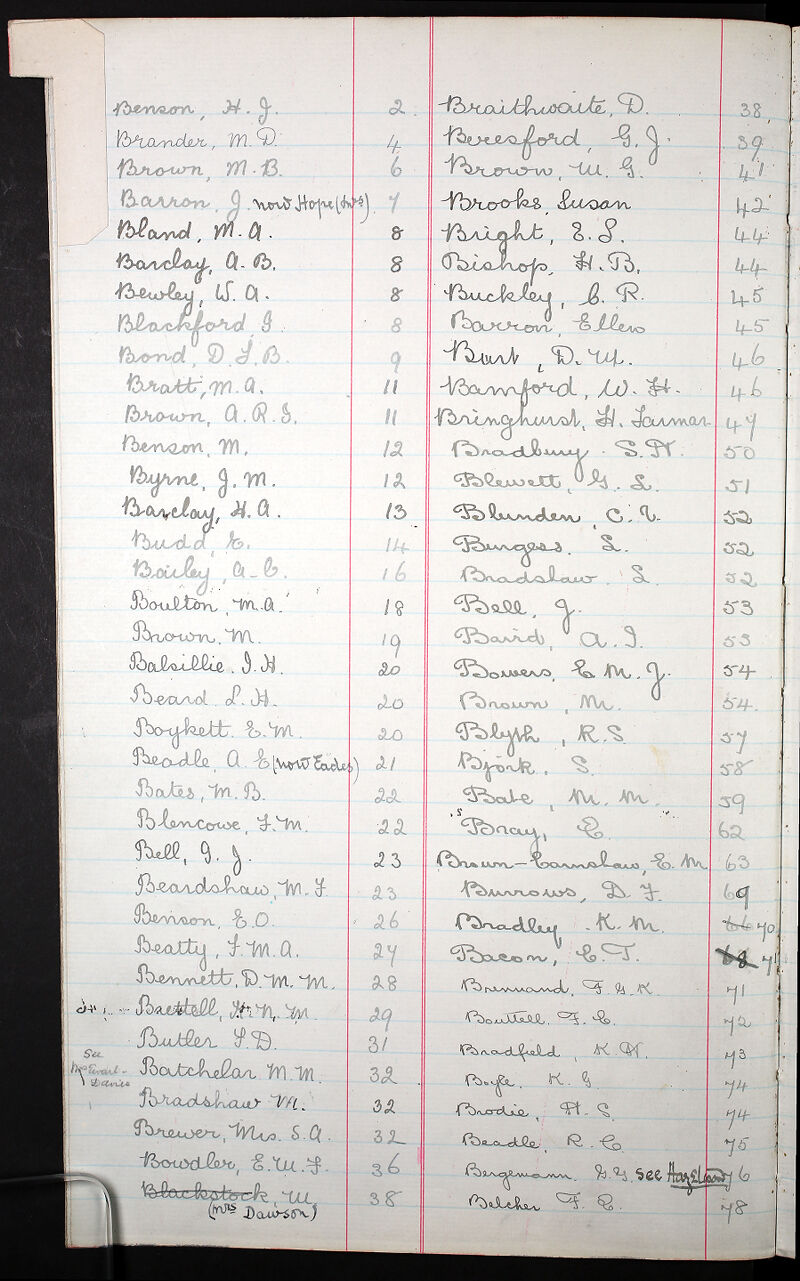 Benson, H. J. 2
Brander, M. D. 4
Brown, M. B. 6
Barron, J. now Hope (Mrs) 7
Bland, M. A. 8
Barclay, A. B. 8
Bewley, W. A. 8
Blackford 8
Bond, D. L. B. 9
Bratt, M. A. 11
Brown, A. R. G. 11
Benson, M. 12
Byrne, J. M. 12
Barclay, H. A. 13
Budd, E. 14
Bailey, A. C. 16
Boulton, M. A. 18
Brown, M. 19
Balsillie. I. H. 20
Beard. L. H. 20
Boykett. E. M. 20
Beadle, A. E (now Eades) 21
Bates, M. B. 22
Blencowe, F. M. 22
Bell, G. J. 23
Beardshaw, M. F 23
Benson, E. O. 26
Beatty, F. M. A. 27
Bennett, D. M. M. 28
Brettell, H. N. M. 29
Butler F. D. 31
See
Mrs Ewart-
Davies
Batchelar M. M. 32
Bradshaw VM. 32
Brewer, Mrs. S. A. 32
Bowdler, E. W. F. 36
Blackstock, M. 38
(Mrs Dawson)
Braithwaite, D. 38
Beresford, G. J. 39
Brown, W. G. 41
Brooks, Susan 42
Bright, E. L. 44
Bishop, H. B. 44
Buckley, C. R. 45
Barron, Ellen 45
Burt, D. M. 46
Bamford, W. H. 46
Bringhurst, H. Larmar 47
Bradbury. S. H. 50
Blewett, G. L. 51
Blunden, C. V. 52
Burgess. L. 52
Bradshaw. L 52
Bell, J. 53
Baird, A. I. 53
Bowers, E M. J. 54
Brown, M. 54.
Blyth, R. S. 57
Björk. S. 58
Bate, M. M. 59
Bray, E. 62
Brown-Earnshaw, E. M 63
Burrows, D. F. 69
Bradley. K. M. 66 70
Bacon, E. T. 68 71
Brennand. F. G. K. 71
Bouttell. F. E. 72
Bradfield, K. H. 73
Boyle. K. G. 74
Brodie, H. S. 74
Beadle, R. C. 75
Bergemann. G. G. See Hazelwood 76
Belcher F. E. 78